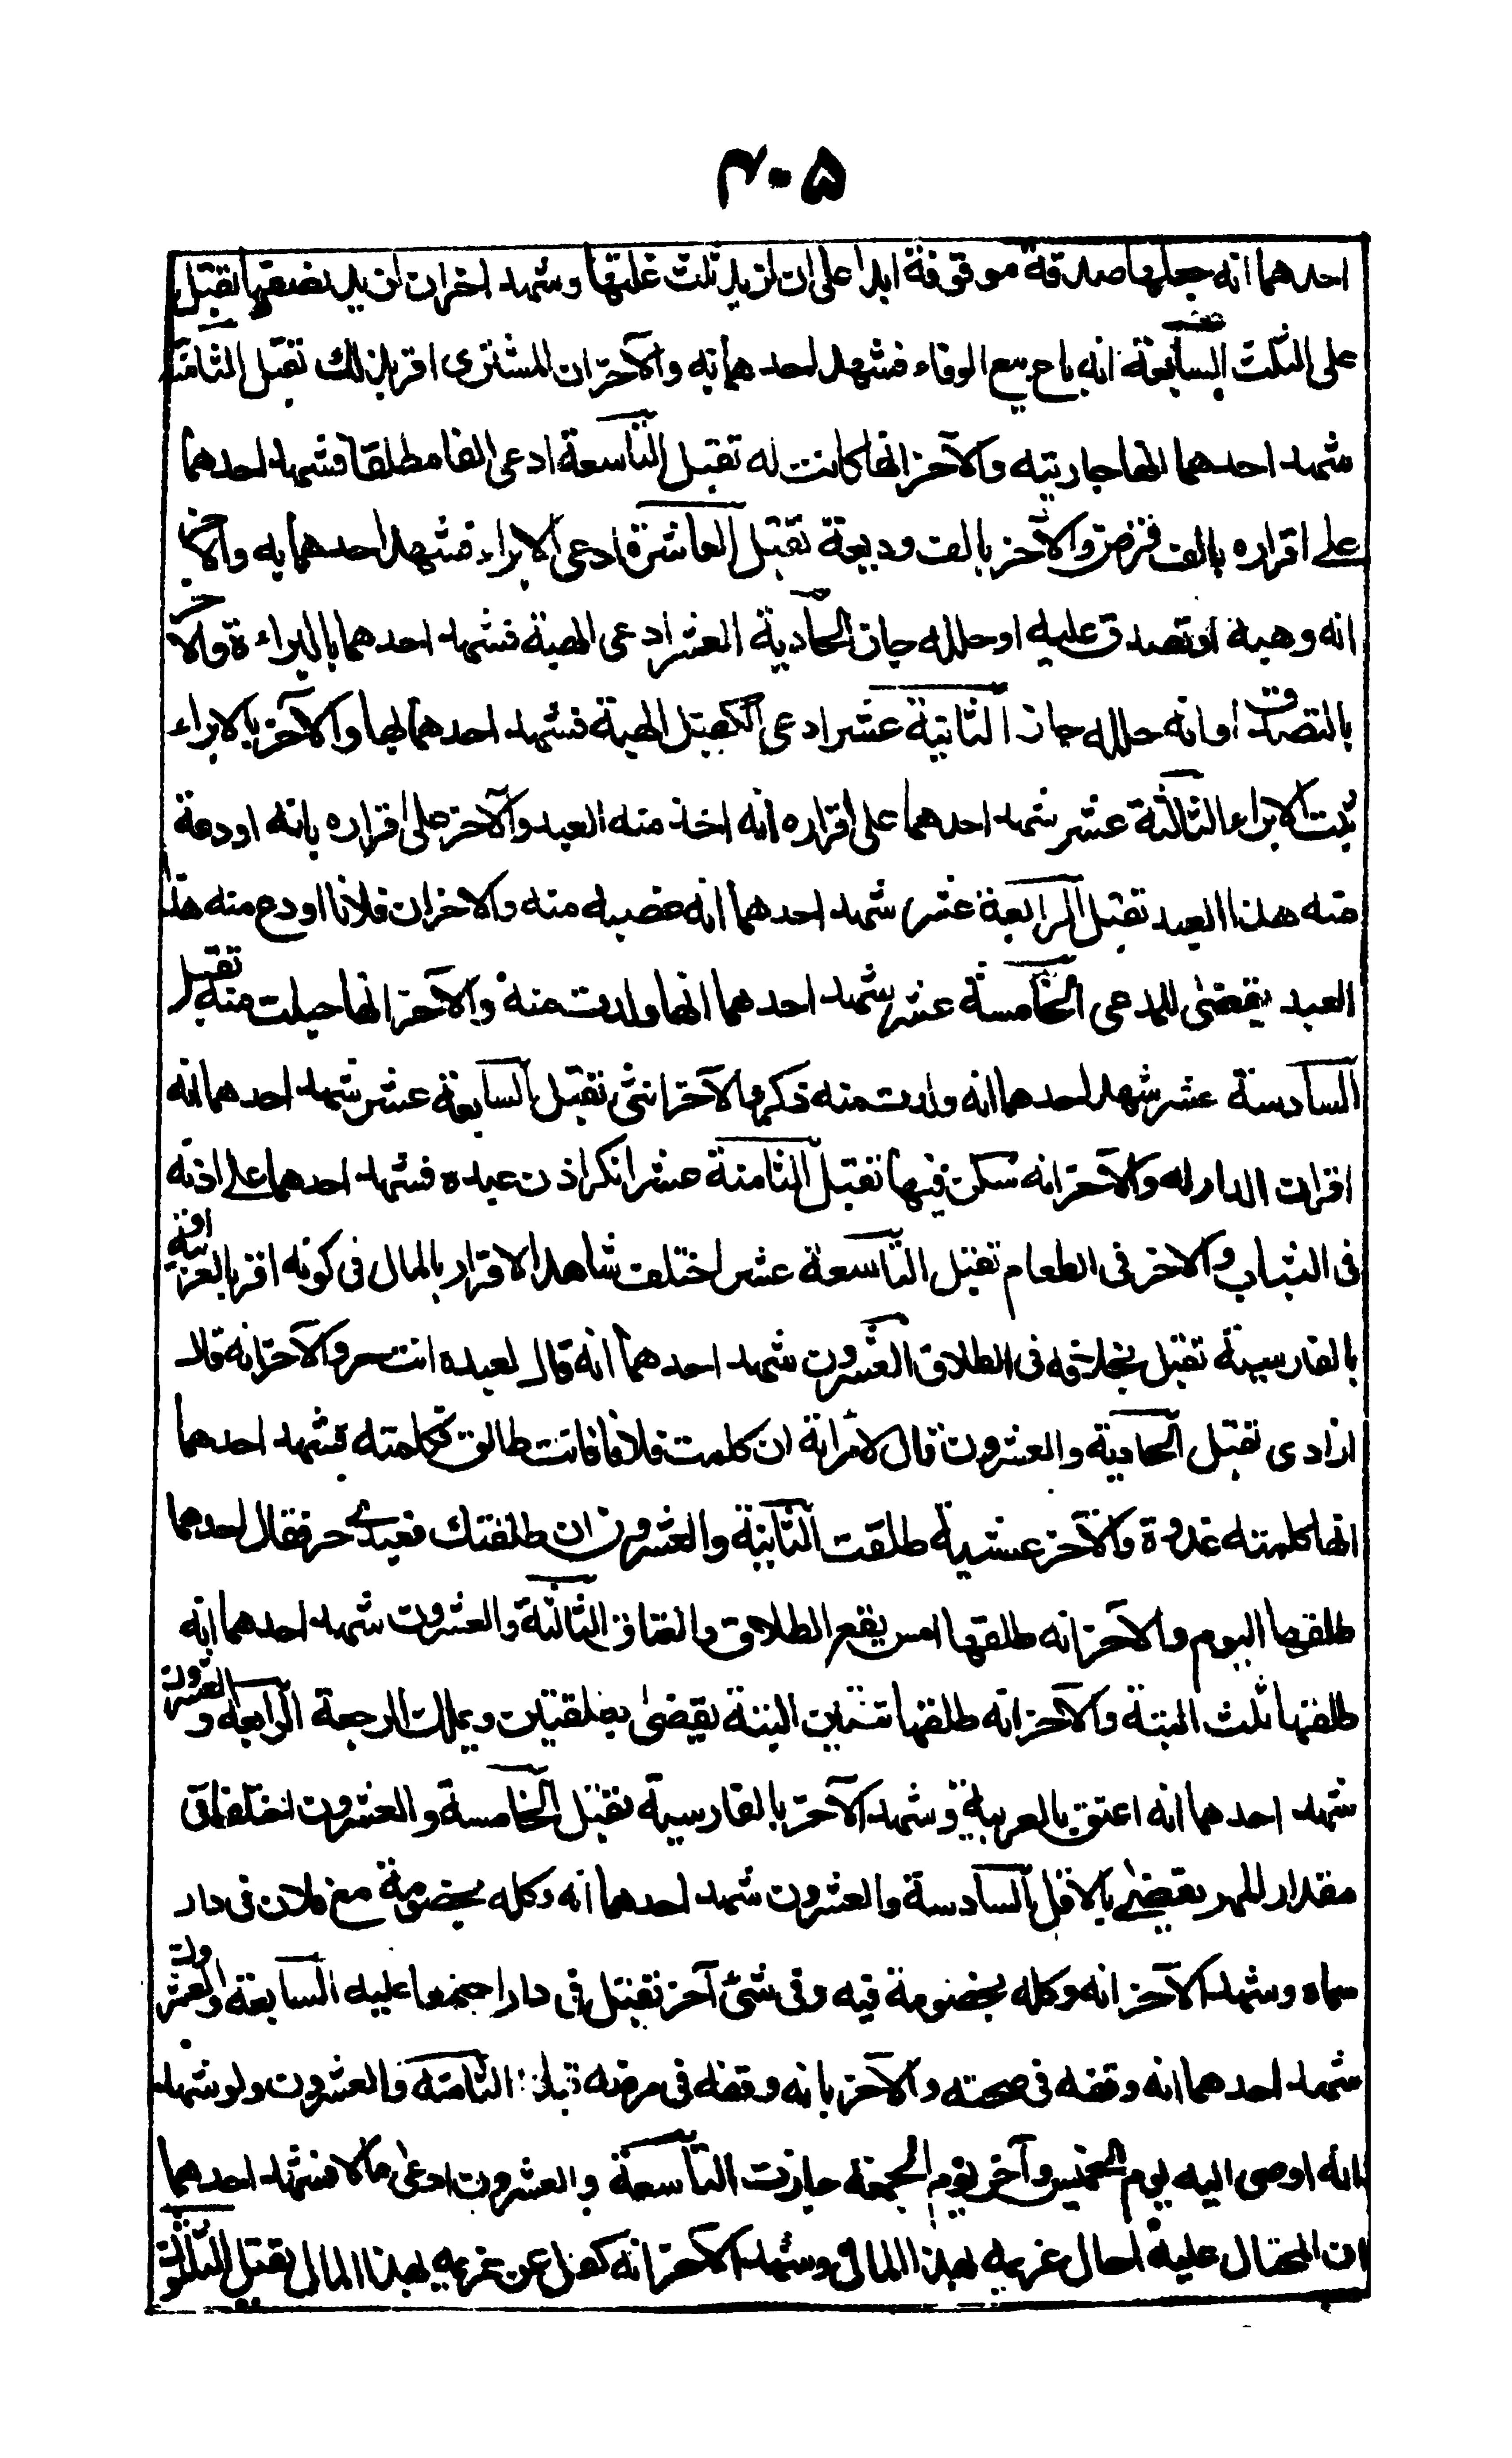 ٣٠٥
احدهما انه جعلها صدقة موقوفة ابدا على ان لزيد ثلث غلتها وشهد اخر ان لزيد نصفها تقبل
على الثلث السابعة انه باع بيع الوفاء فشهد احدهما به والآخر ان المشترى اقر بذلك تقبل الثامنة
شهد احدهما انها جاريته والآخر انها كانت له تقبل التاسعة ادعى الفا مطلقا فشهد احدهما
على اقراره بالف قرض والآخر بالف وديعة تقبل العاشرة ادعى الابراء فشهد احدهما به والآخر
انه وهبه او تصدق عليه او حلله جاز الحادية العشر ادعى الهبة فشهد احدهما بالبراءة والآخر
بالتصدق او انه حلله جاز الثانية عشر ادعى الكفيل الهبة فشهد احدهما بها والآخر بالابراء
ثبت الابراء الثالثة عشر شهد احدهما على اقراره انه اخذ منه العبد والآخر على اقراره بانه اودعه
منه هذا العبد تقبل الرابعة عشر شهد احدهما انه غصبه منه والاخر ان فلانا اودع منه هذا
العبد يقضى للمدعى الخامسة عشر شهد احدهما انها ولدت منه والآخر انها حبلت منه تقبل
السادسة عشر شهد احدهما انه ولدت منه ذكر والآخر انثى تقبل السابعة عشر شهد احدهما انه
اقر ان الدار له والآخر انه سكن فيها تقبل الثامنة عشر انكر اذن عبده فشهد احدهما على اذنه
فى الثياب والاخر فى الطعام تقبل التاسعة عشر اختلف شاهد الاقرار بالمال فى كونه اقر بالعربية او
بالفارسية تقبل بخلافه فى الطلاق العشرون شهد احدهما انه قال لعبده انت حر والآخر انه قال
ازادى تقبل الحادية والعشرون قال لامرأته ان كلمت فلانا فانت طالق فكلمته فشهد احدهما
انها كلمته غدوة والآخر عشية طلقت الثانية والعشرون ان طلقتك فعبدى حر فقال احدهما
طلقها اليوم والآخر انه طلقها امس يقع الطلاق والعتاق الثالثة والعشرون شهد احدهما انه
طلقها ثلث البتة والآخر انه طلقها ثنتين البتة يقضى بطلقتين ويملك الرجعة الرابعة والعشرون
شهد احدهما انه اعتق بالعربية وشهد الآخر بالفارسية تقبل الخامسة والعشرون اختلفا فى
مقدار المهر يقضى بالاقل السادسة والعشرون شهد احدهما انه وكله بخصومة مع فلان فى دار
سماه وشهد الآخر انه وكله بخصومة فيه وفى شئ آخر تقبل فى دار اجتمعا عليه السابعة والعشرون
شهد احدهما انه وقفه فى صحته والآخر بانه وقفه فى مرضه قبلا الثامنة والعشرون ولو شهد
انه اوصى اليه يوم الخميس وآخر يوم الجمعة جازت التاسعة والعشرون ادعى مالا فشهد احدهما
ان المحتال عليه احال غريمه بهذا المال وشهد الآخر انه كفل عن غريمه بهذا المال تقبل الثلثون